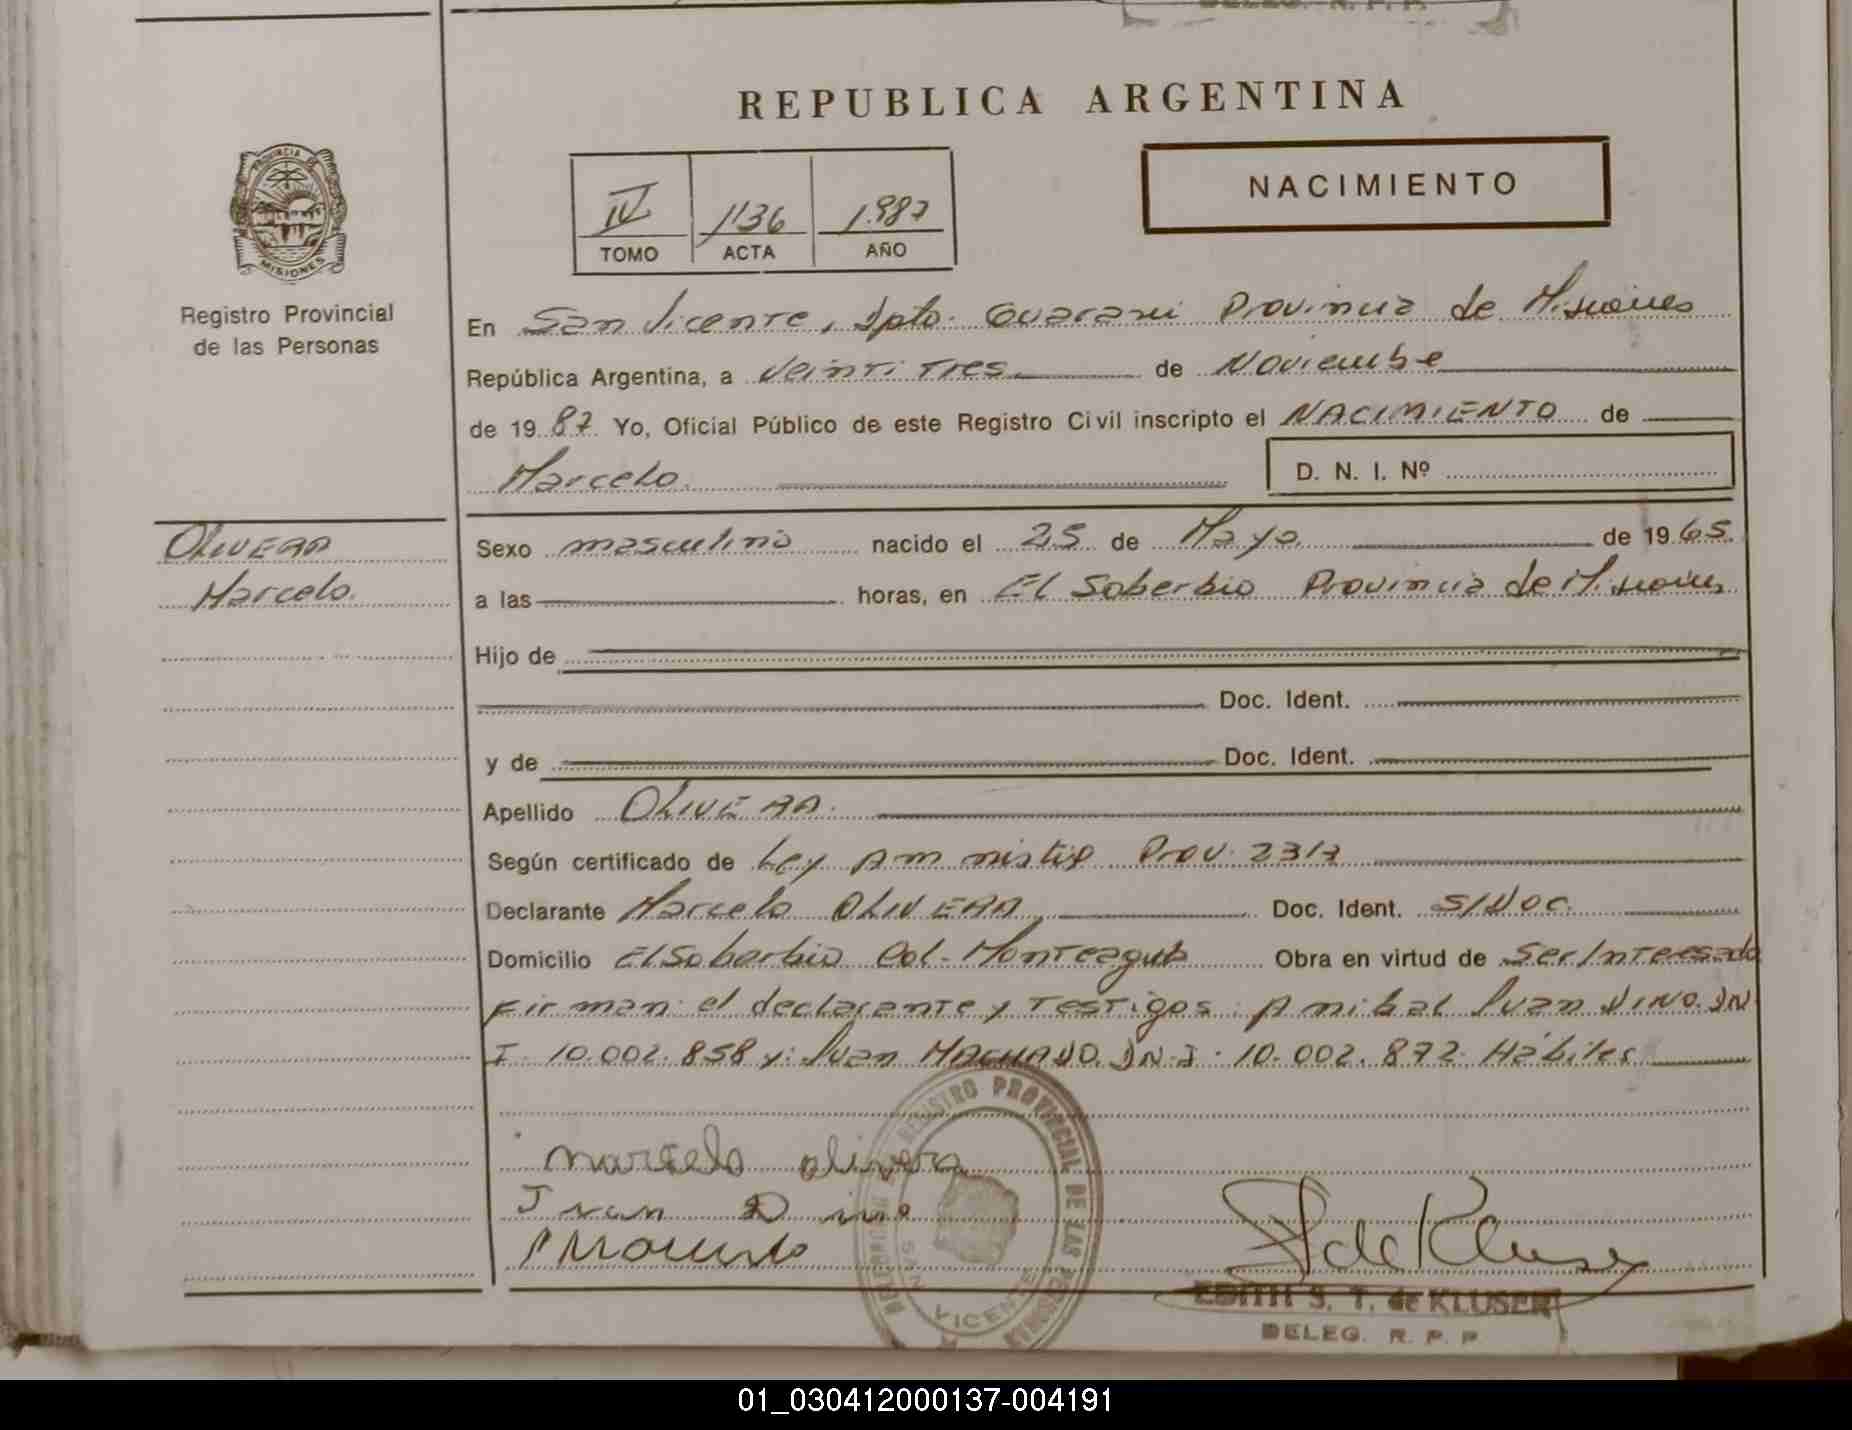 DELEG. R. P. P.
REPUBLICA ARGENTINA
NACIMIENTO
IV 1136 1.987
TOMO ACTA AÑO
PROVINCIA DE
MISIONES
Registro Provincial
de las Personas
En San Vicente, Dpto. Guarani Provincia de Misiones
República Argentina, a Veinti Tres de Noviembre
de 1987 Yo, Oficial Público de este Registro Civil inscripto el NACIMIENTO de
Marcelo. D. N. I. Nº
OLIVERA
Marcelo.
Sexo masculino nacido el 25 de Mayo de 1965.
a las horas, en El Soberbio Provincia de Misiones
Hijo de
Doc. Ident.
y de Doc. Ident.
Apellido OLIVERA.
Según certificado de Ley Amnistia Prov. 2317
Declarante Marcelo OLIVERA Doc. Ident. S/DOC.
Domicilio El Soberbio Col. Monteagudo Obra en virtud de Ser Interesado
Firman: el declarante y Testigos: Anibal Juan DINO. DN
I. 10.002.858 y: Juan MACHADO. DN.I: 10.002.872. Hábiles
marcelo olivera
Juan Dino
REGISTRO PROVINCIAL DE LAS PERSONAS
SAN VICENTE
EDITH S. T. de KLUSER
DELEG. R. P. P
01_030412000137-004191